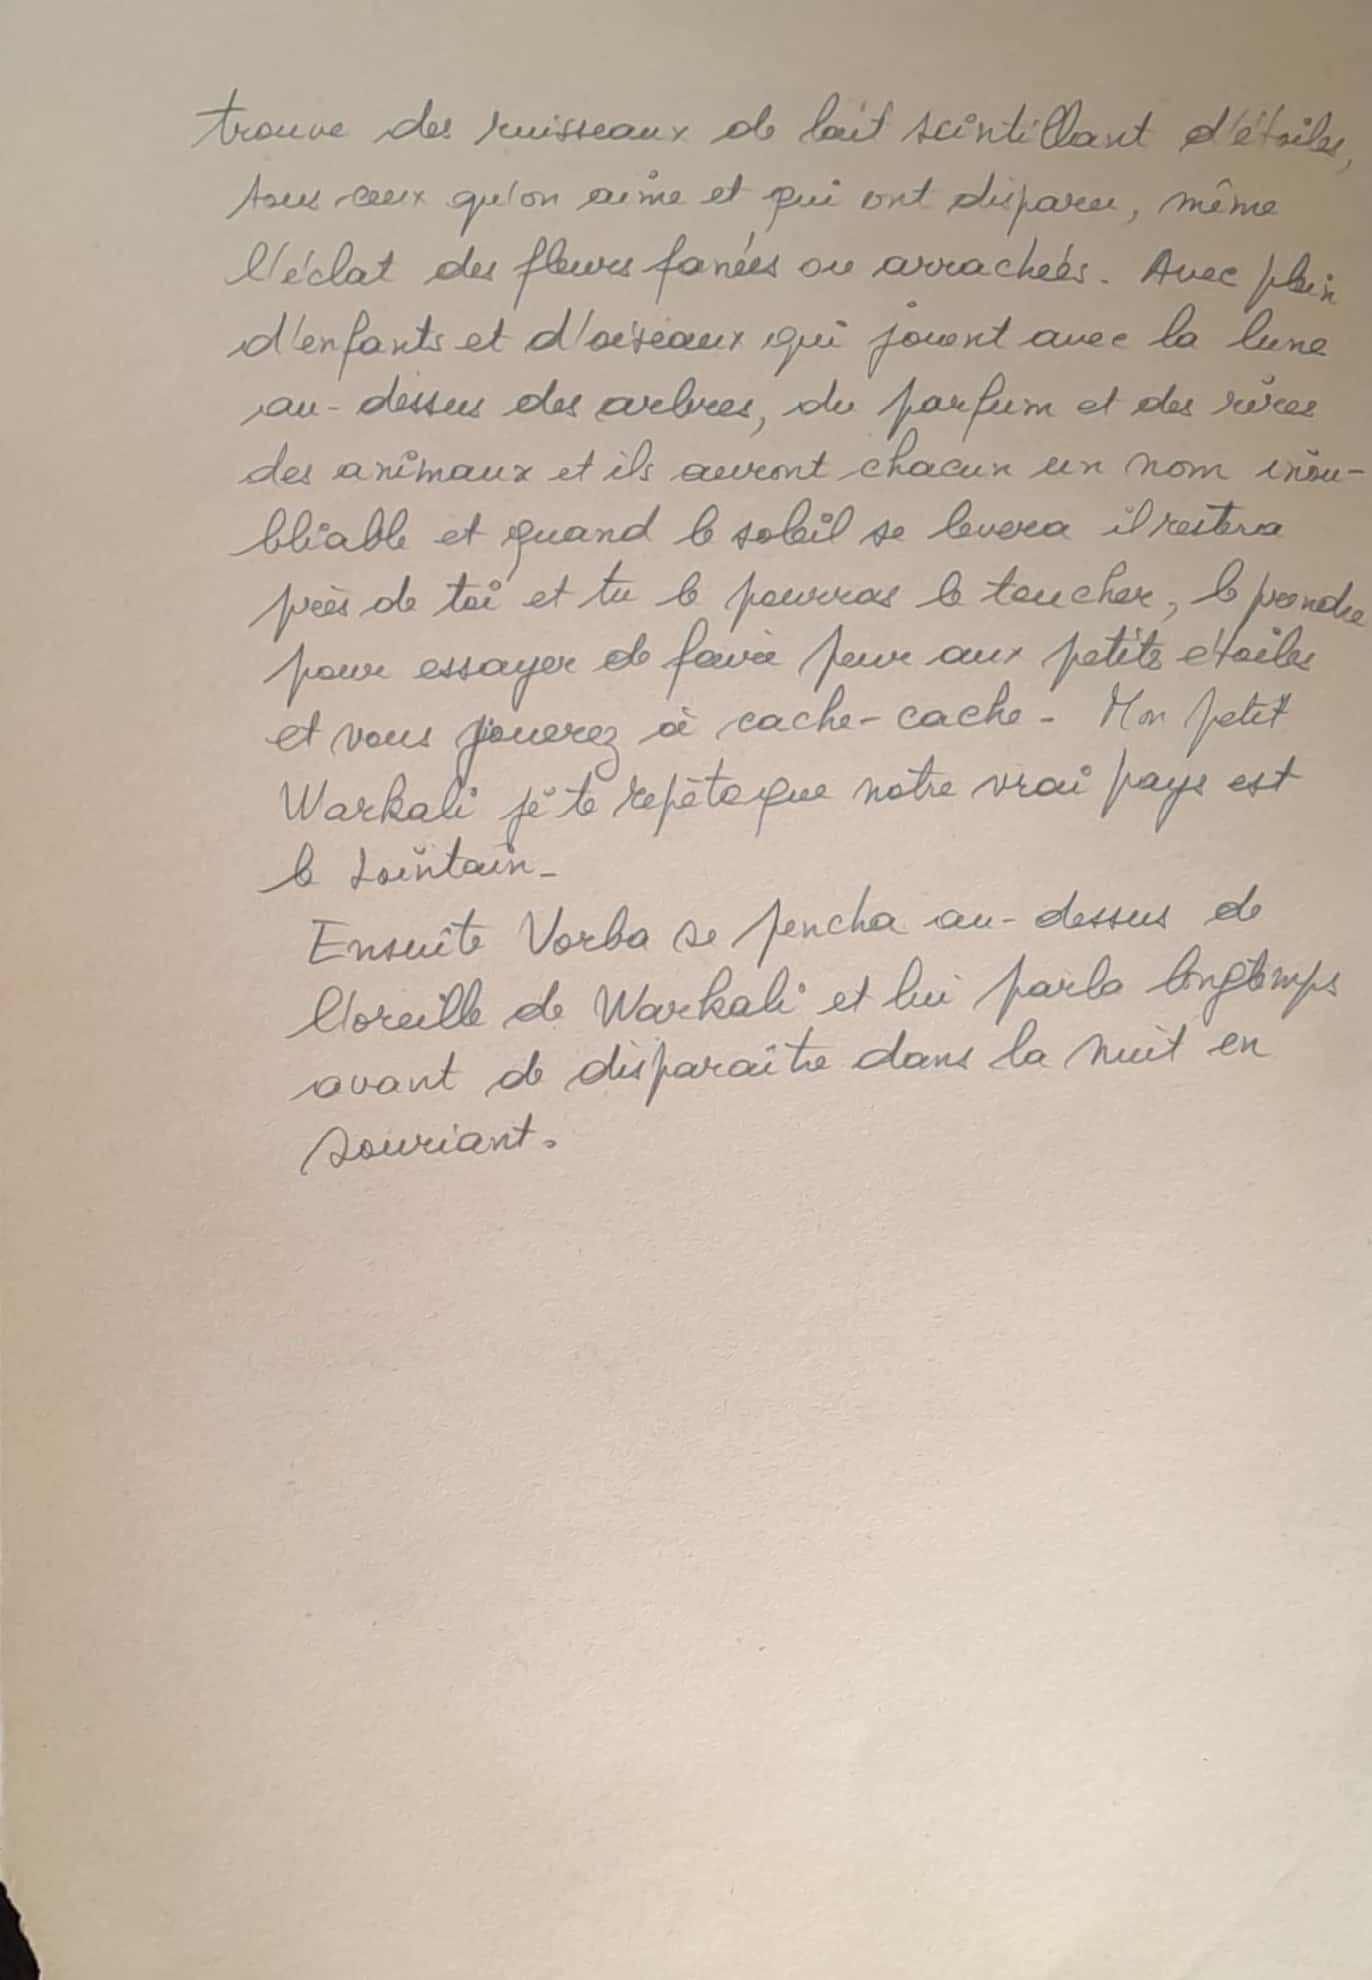 trouve des ruisseaux de lait scintillant d'étoiles,
tous ceux qu'on aime et qui ont disparu, même
l'éclat des fleurs fanées ou arrachées. Avec plein
d'enfants et d'oiseaux qui jouent avec la lune
au-dessus des arbres, du parfum et des rêves
des animaux et ils auront chacun un nom inou-
bliable et quand le soleil se levera il restera
près de toi et tu le pourras le toucher, le prendre
pour essayer de faire peur aux petites étoiles
et vous jouerez à cache-cache - Mon petit
Warkali je te repète que notre vrai pays est
le Lointain -
Ensuite Vorba se pencha au-dessus de
l'oreille de Warkali et lui parla longtemps
avant de disparaître dans la nuit en
souriant.